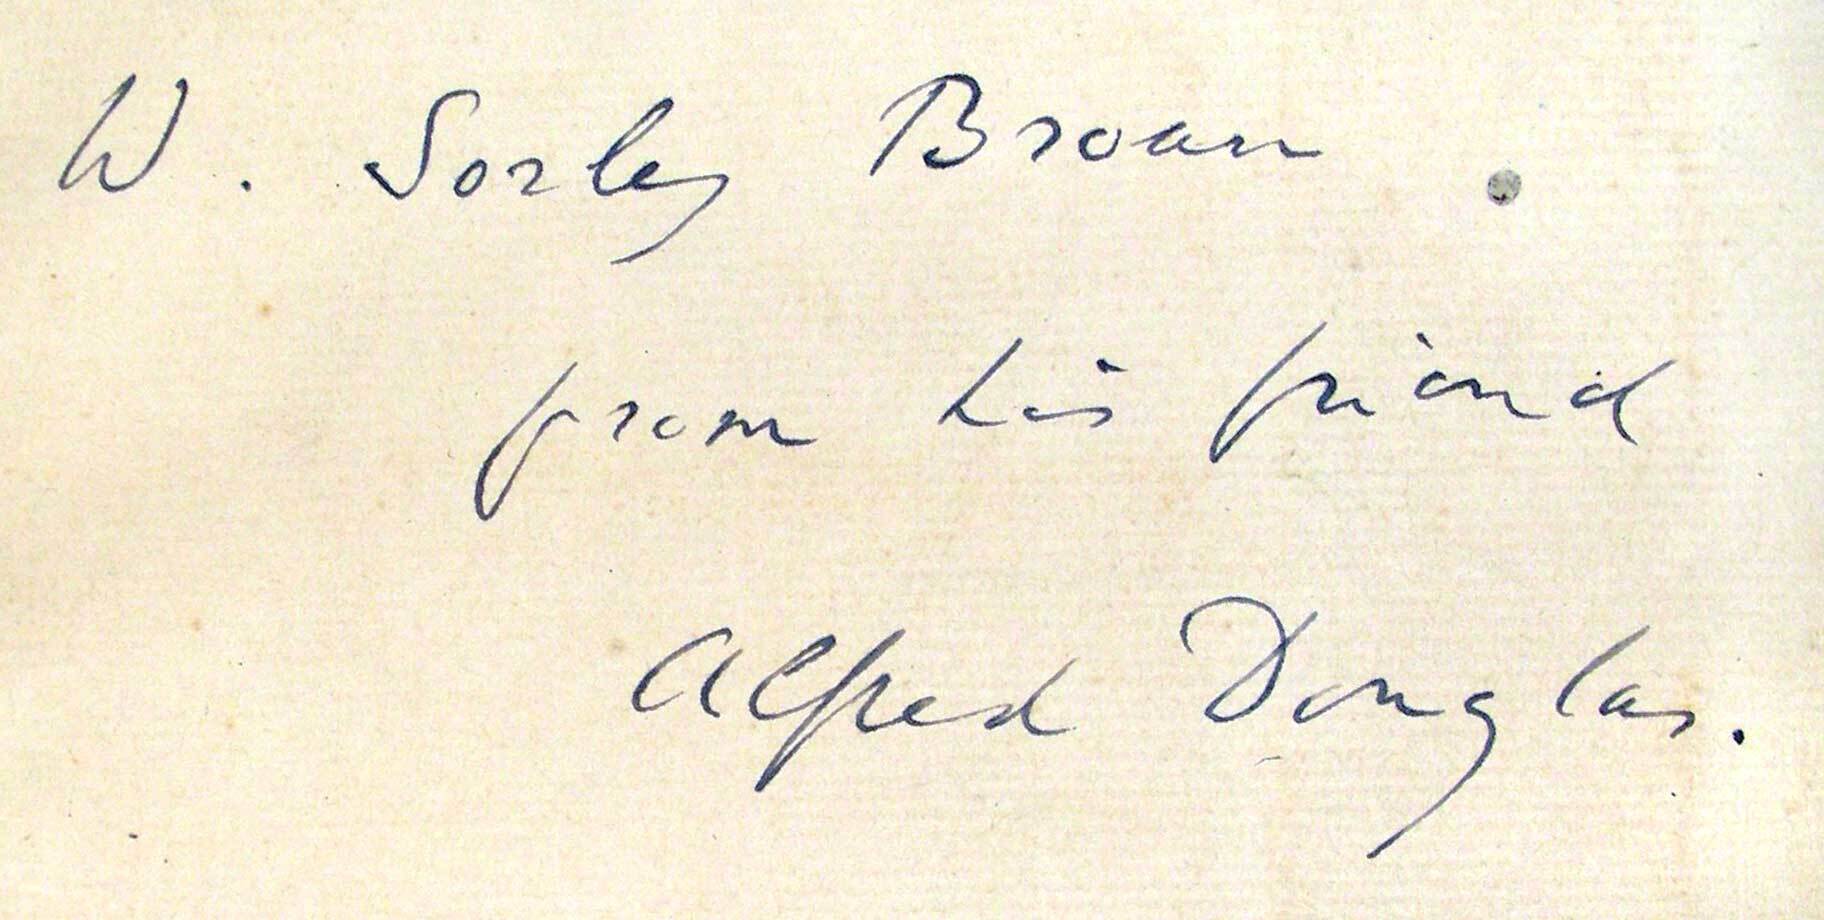 W. Sorley Brown
from his friend
Alfred Douglas.